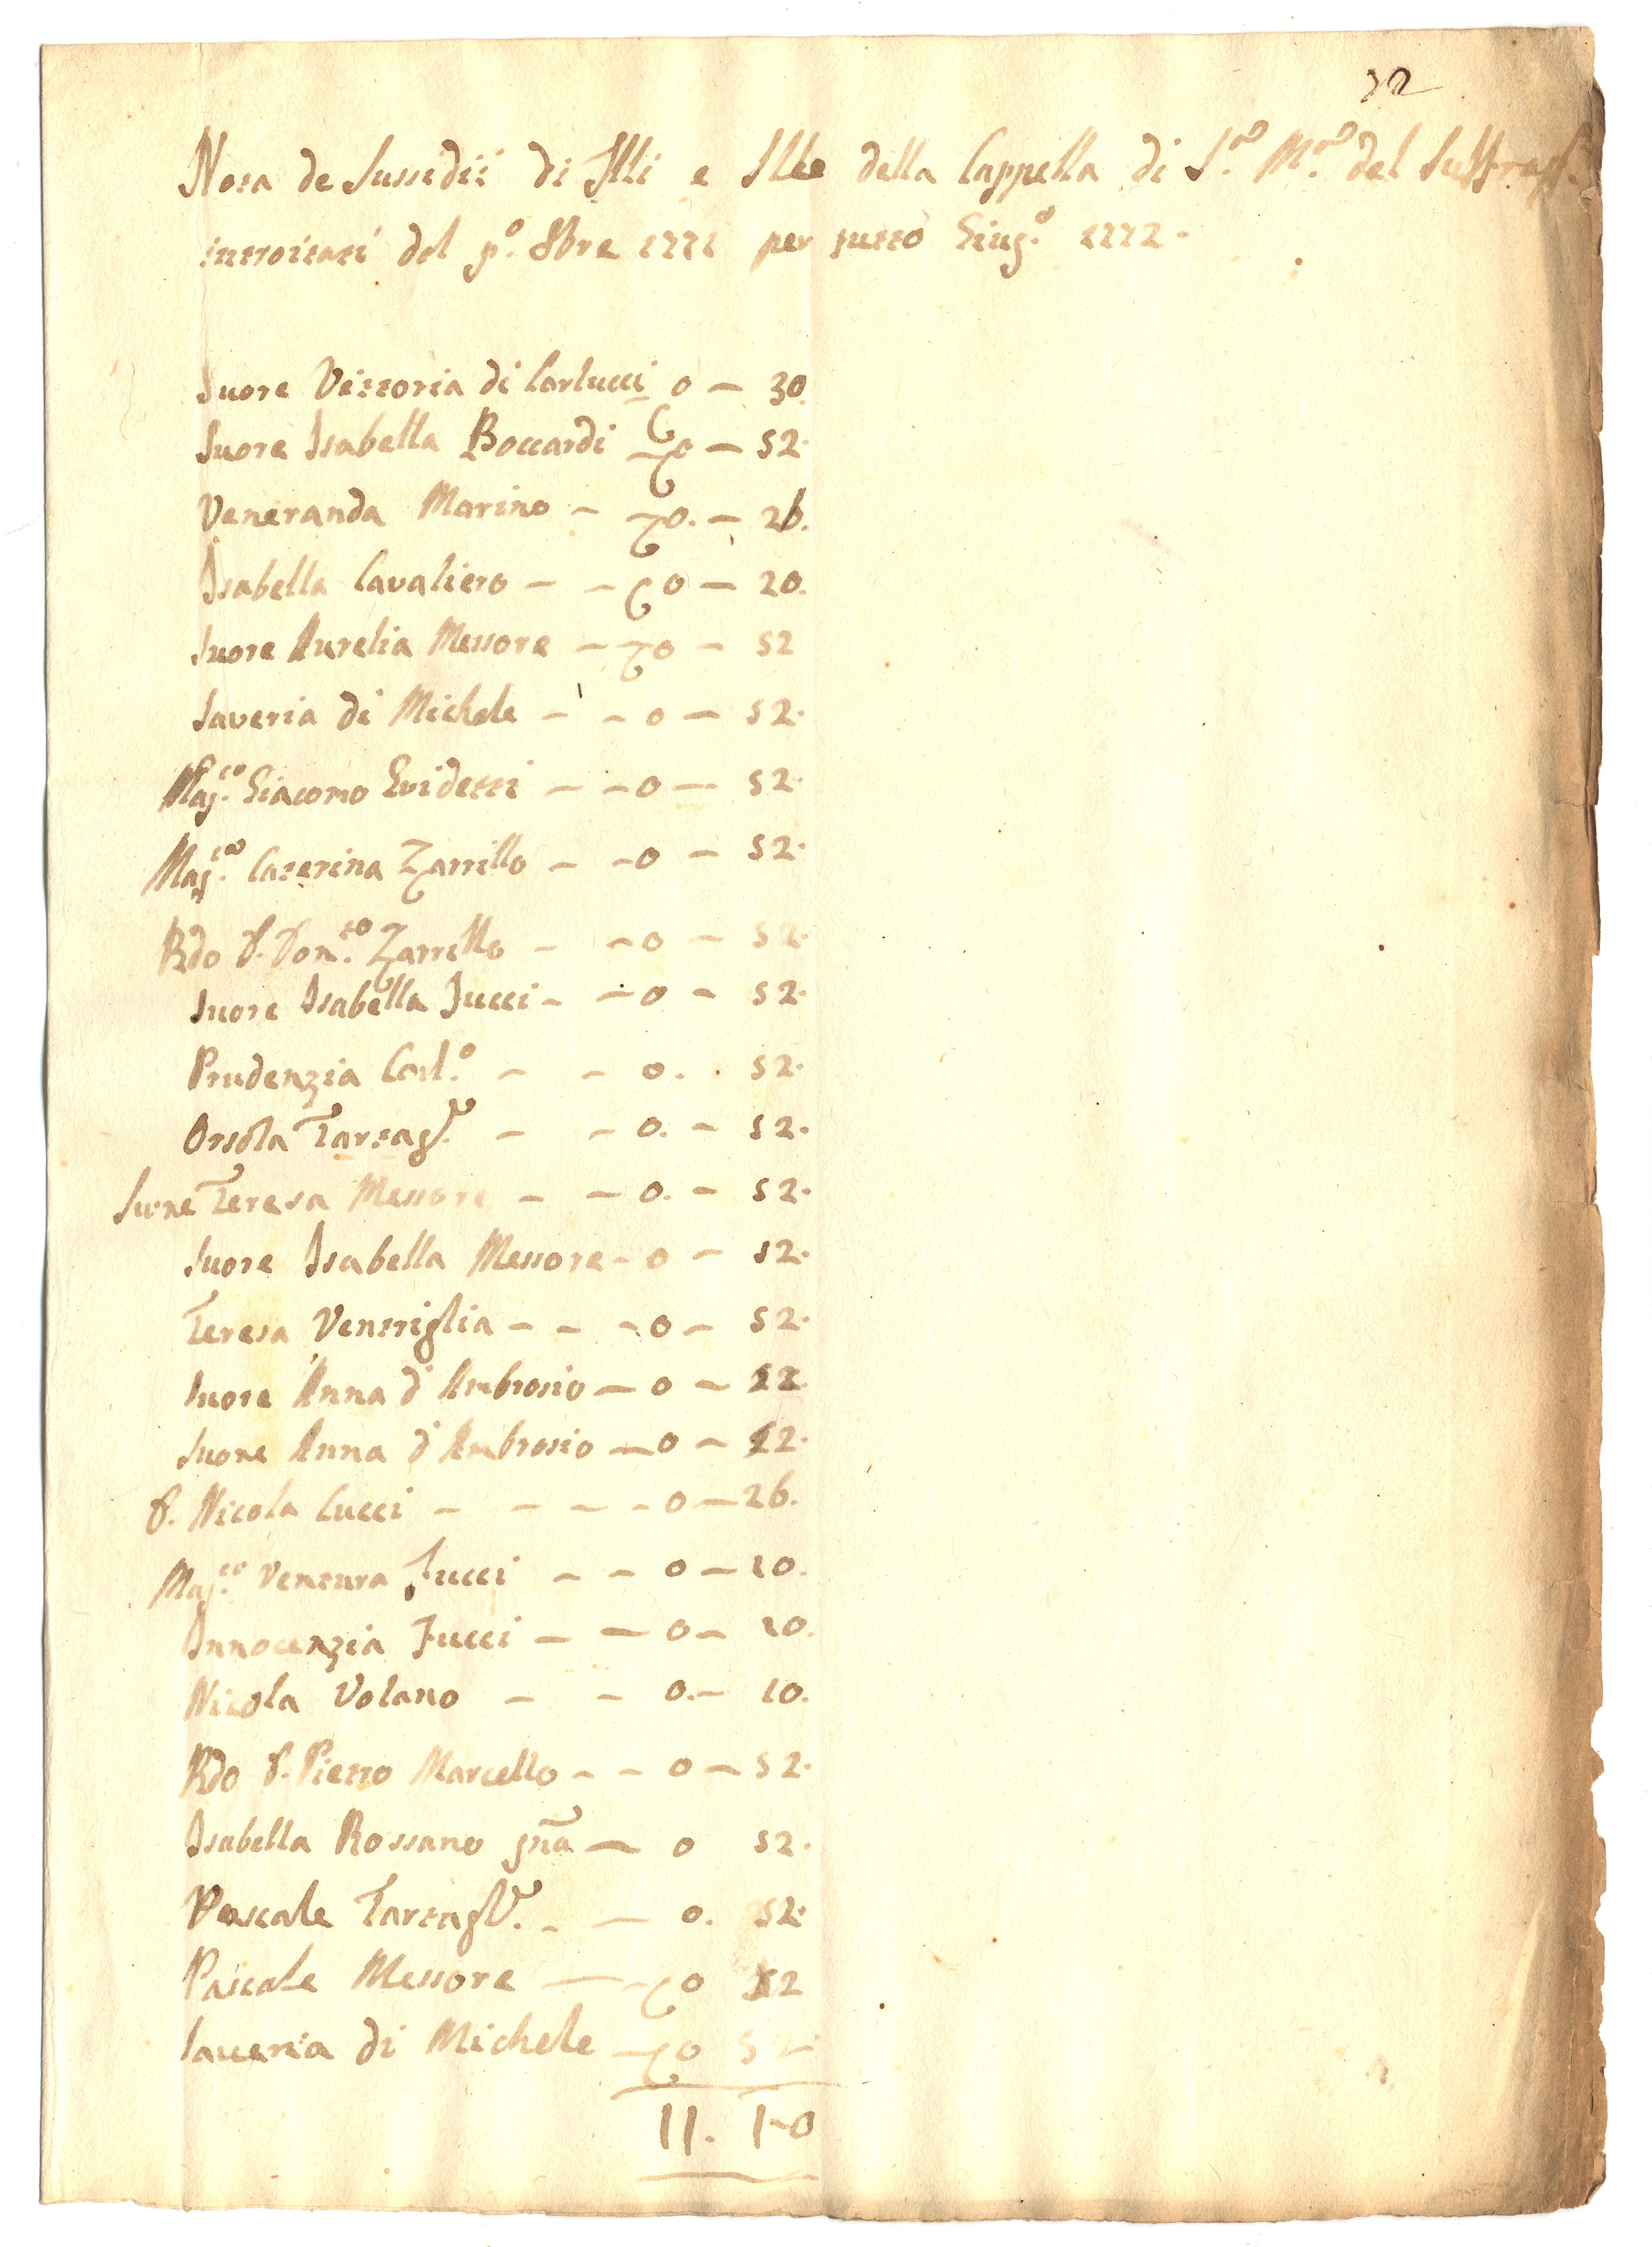 32
Nota de Sussidii di Flli e Slle della Cappella di S.ª M.ª del Suffrag.
introitati dal p.º 8bre 1771 per tutto Giug.º 1772.
Suore Vittoria di Carlucci 0 — 30.
Suore Isabella Boccardi — 0 — 52.
Veneranda Marino — 0. — 26.
Isabella Cavaliero — — 0 — 20.
Suore Aurelia Messore — 0 — 52
Saveria di Michele — - 0 — 52.
Mag.co Giacomo Guidetti — - 0 — 52.
Mag.ca Caterina Zarrillo — - 0 — 52.
Rdo D. Dom.co Zarrillo — - 0 — 52.
Suore Isabella Jucci - — 0 - 52.
Prudenzia Carl.º - - 0. . 52.
Orsola Tartagl.ª — - 0. - 52.
Suore Teresa Messore — — 0. - 52.
Suore Isabella Messore - 0 — 52.
Teresa Ventriglia — — - 0 — 52.
Suore Anna d'Ambrosio — 0 — 12.
Suore Anna d'Ambrosio — 0 — 12.
D. Nicola Cucci — — — - 0 — 26.
Mag.co Ventura Jucci — — 0 — 10.
Innocenzia Jucci — — 0 — 10.
Nicola Volano — - 0. — 10.
Rdo D. Pietro Marcello — - 0 — 52.
Isabella Rossano pña — 0 52.
Pascale Tartagl.ª - — 0. 52.
Pascale Messore — 0 12
Saveria di Michele — 0 52
11. 1-0